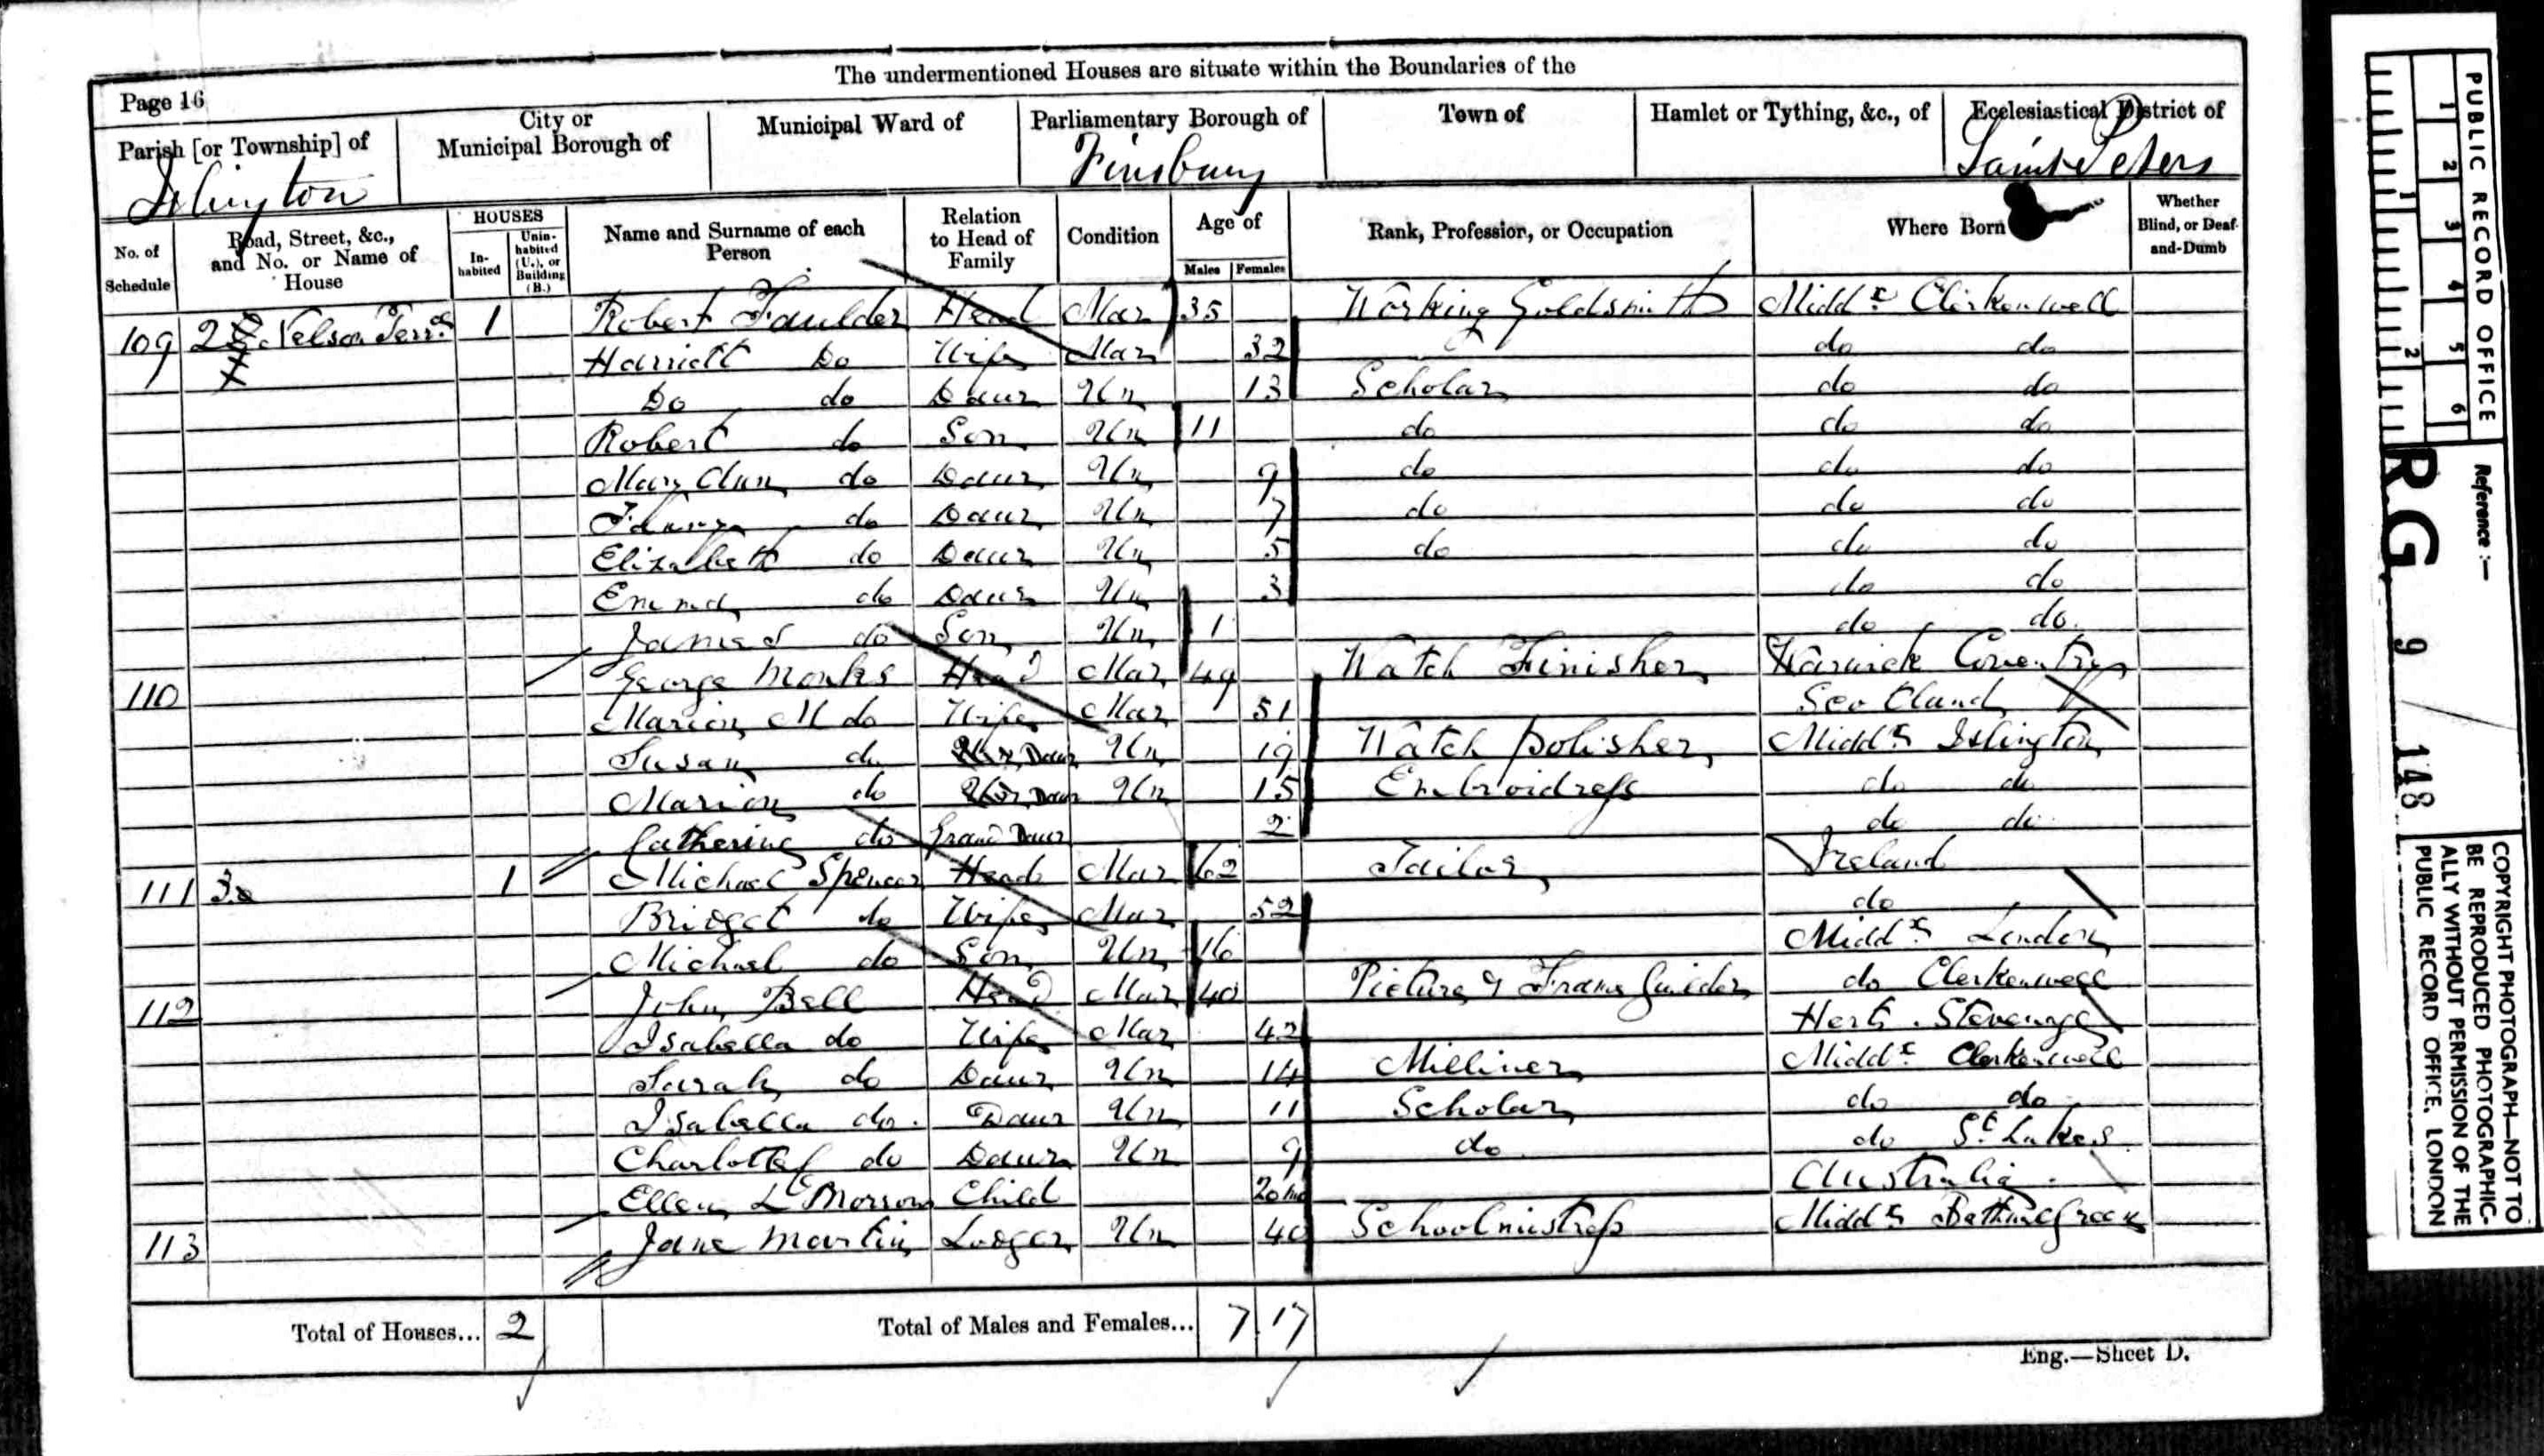 The undermentioned Houses are situate within the Boundaries of the
Page 16
Parish [or Township] of
Islington
City or
Municipal Borough of
Municipal Ward of
Parliamentary Borough of
Finsbury
Town of
Hamlet or Tything, &c., of
Ecclesiastical District of
Saint Peters
No. of
Schedule
Road, Street, &c.,
and No. or Name of
House
HOUSES
In-
habited
Unin-
habited
(U.), or
Building
(B.)
Name and Surname of each
Person
Relation
to Head of
Family
Condition
Age of
Males
Females
Rank, Profession, or Occupation
Where Born
Whether
Blind, or Deaf-
and-Dumb
109 2 Nelson Terr. 1 Robert Faulder Head Mar 35 Working Goldsmith Middx Clerkenwell
Harriett Do Wife Mar 32 do do
Do do Daur Un 13 Scholar do do
Robert do Son Un 11 do do do
Mary Ann do Daur Un 9 do do do
do Daur Un 7 do do do
Elizabeth do Daur Un 5 do do do
Emma do Daur Un 3 do do
James do Son Un 1 do do.
110 George Monks Head Mar 49 Watch Finisher Warwick Coventry
Marion M do Wife Mar 51 Scotland
Susan do Daur Un 19 Watch polisher Middx Islington
Marion do Daur Un 15 Embroidress do do
Catherine do Grand Daur 2 do do
111 3 1 Michael Spencer Head Mar 62 Tailor Ireland
Bridget do Wife Mar 52 do
Michael do Son Un 16 Middx London
112 John Bell Head Mar 40 Picture & Frame Guilder do Clerkenwell
Isabella do Wife Mar 42 Herts. Stevenage
Sarah do Daur Un 14 Milliner Middx Clerkenwell
Isabella do. Daur Un 11 Scholar do do
Charlotte do Daur Un 9 do do St Lukes
Ellen L Morson Child 20 mo Australia
113 Jane Martin Lodger Un 40 Schoolmistress Middx Bethnal Green
Total of Houses... 2
Total of Males and Females... 7 17
Eng.—Sheet D.
PUBLIC RECORD OFFICE
1 2 3 4 5 6
1 2
Reference :—
R.G. 9 148
COPYRIGHT PHOTOGRAPH—NOT TO
BE REPRODUCED PHOTOGRAPHIC-
ALLY WITHOUT PERMISSION OF THE
PUBLIC RECORD OFFICE, LONDON